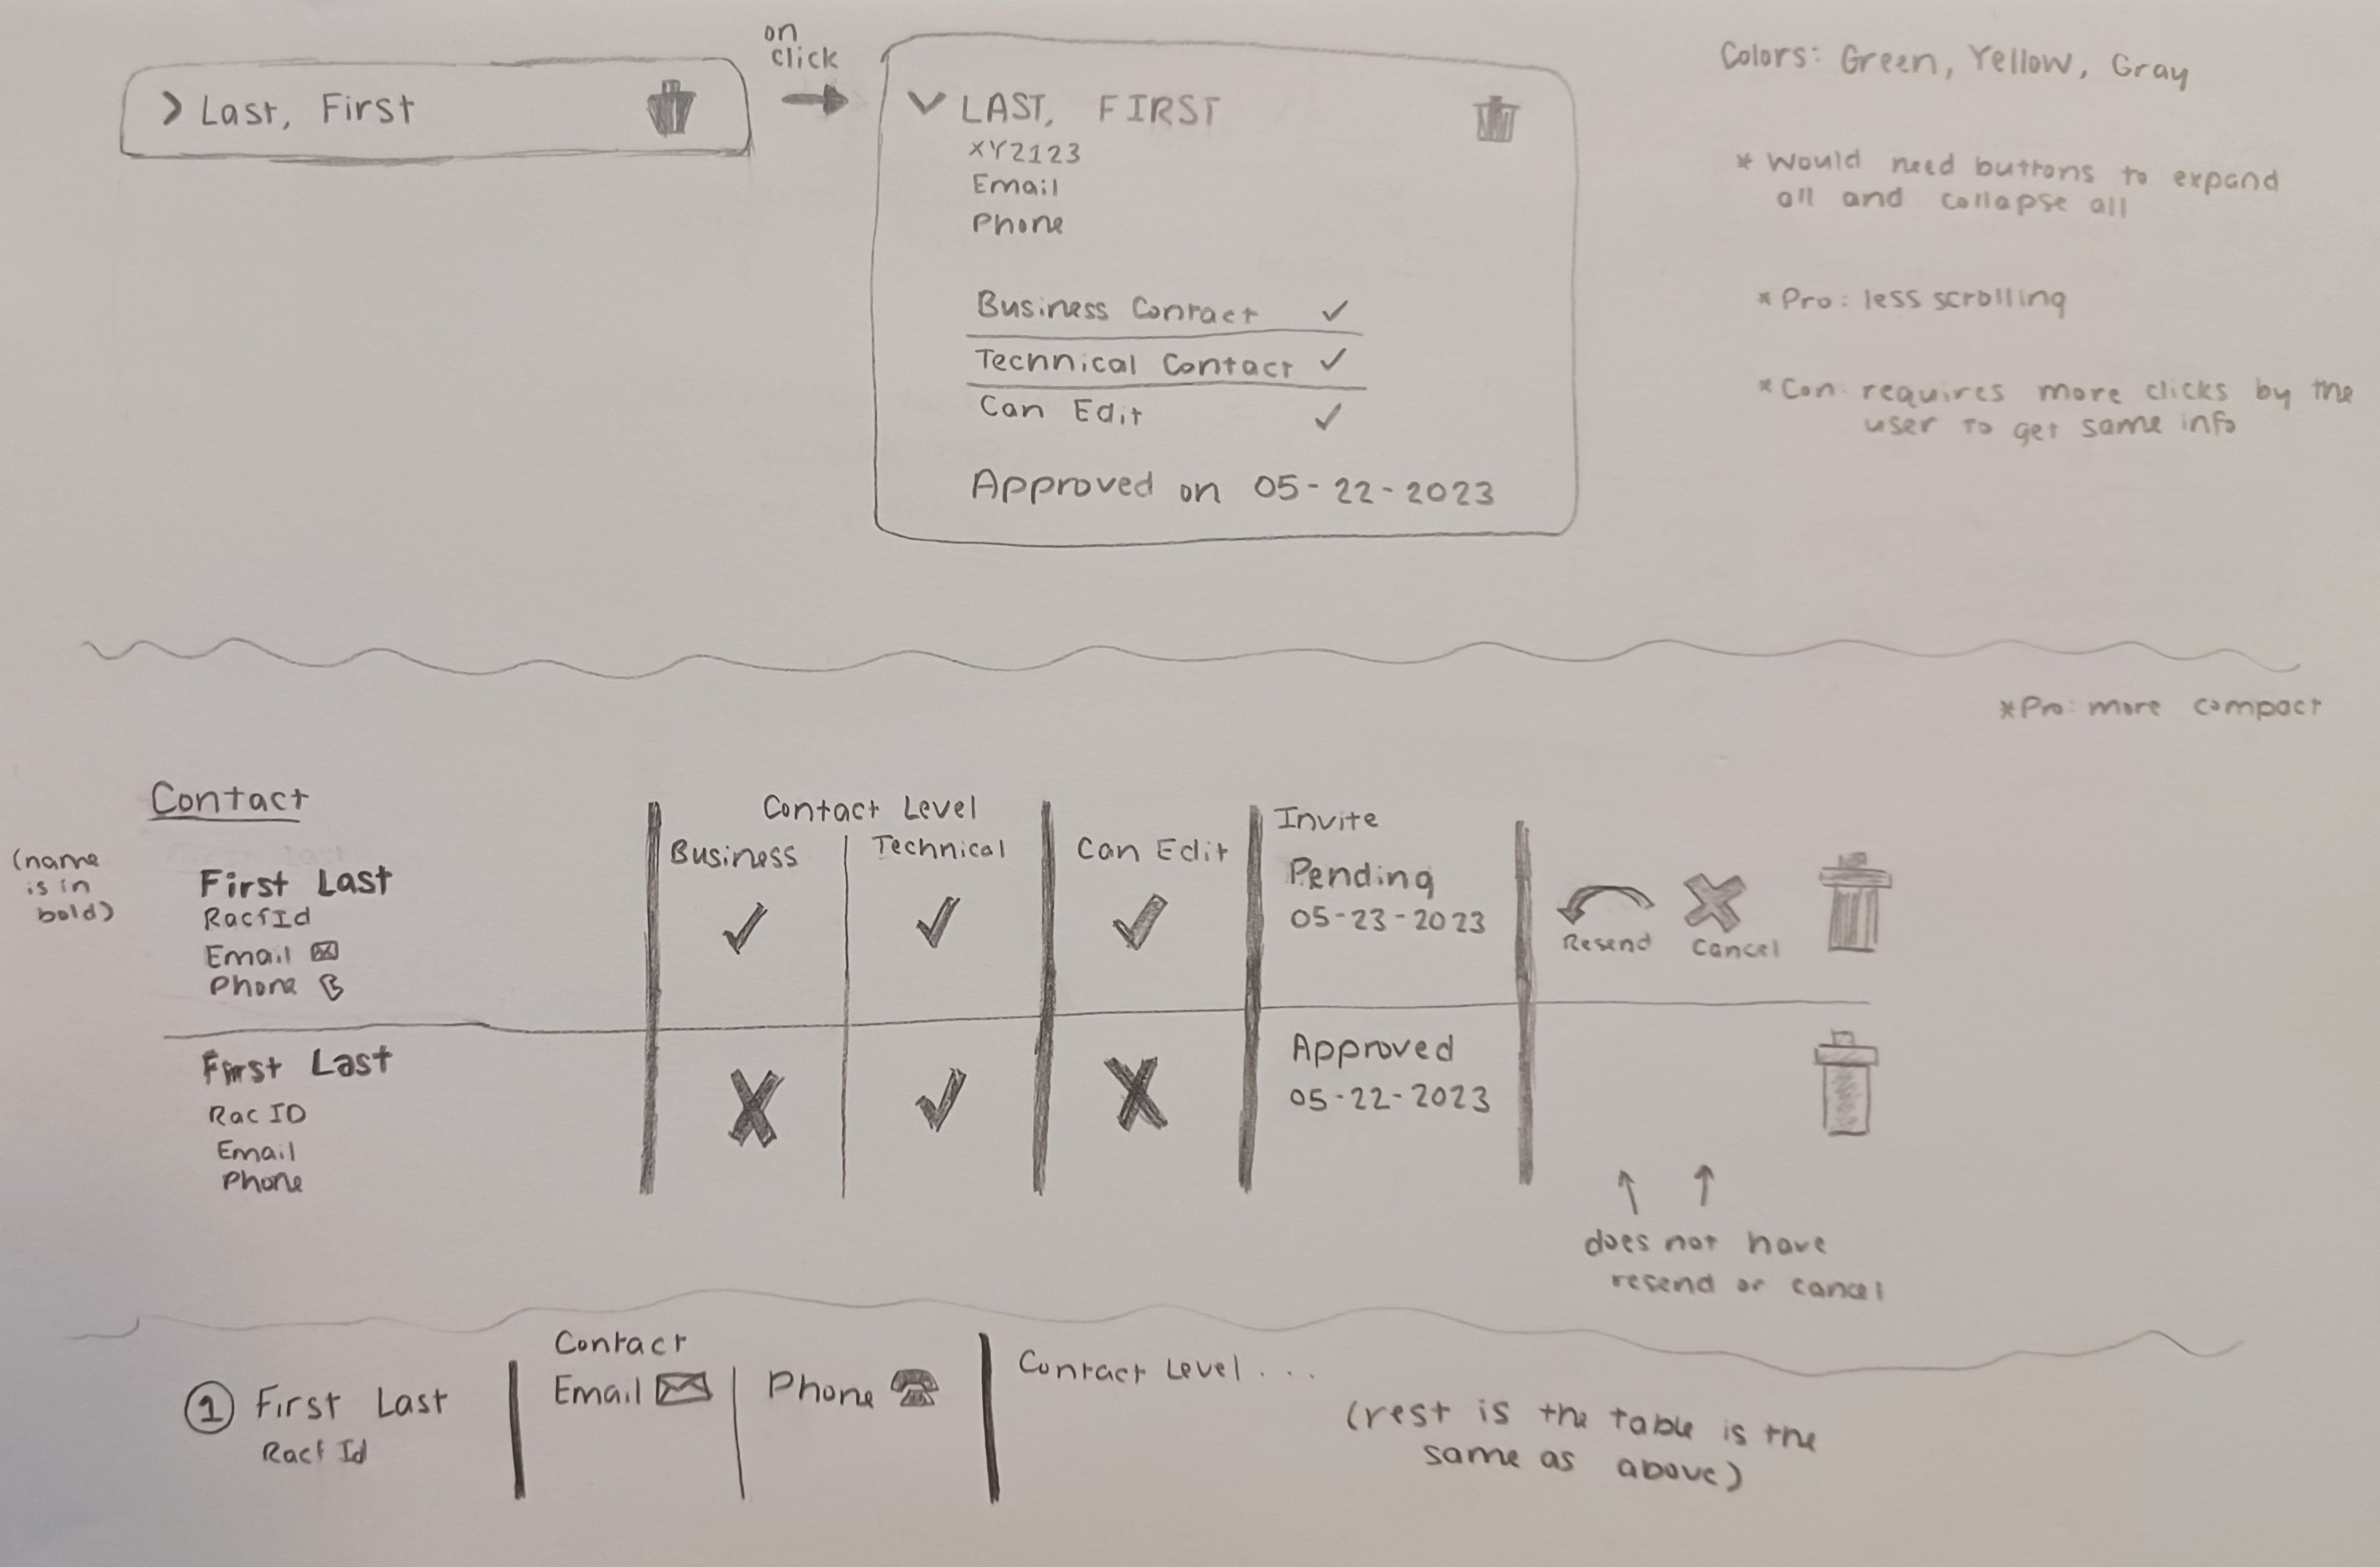 Last, First
on
click
LAST, FIRST
XYZ123
Email
Phone
Business Contact ✓
Technical Contact ✓
Can Edit ✓
Approved on 05-22-2023
Colors: Green, Yellow, Gray
* Would need buttons to expand
all and collapse all
* Pro: less scrolling
* Con: requires more clicks by the
user to get same info
* Pro: more compact
Contact
(name
is in
bold)
First Last
RacfId
Email
Phone
Contact Level
Business
Technical
Can Edit
Invite
Pending
05-23-2023
Resend
Cancel
First Last
Rac ID
Email
Phone
Approved
05-22-2023
does not have
resend or cancel
1 First Last
Racf Id
Contact
Email
Phone
Contact Level ...
(rest is the table is the
same as above)